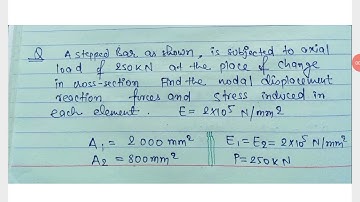 Q A stepped bar as shown, is subjected to axial
load of 250KN at the place of change
in cross-section Find the nodal displacement
reaction forces and stress induced in
each element. E= 2x10⁵ N/mm²
A₁ = 2000 mm² E₁=E₂= 2x10⁵ N/mm²
A₂ = 800mm² P=250KN